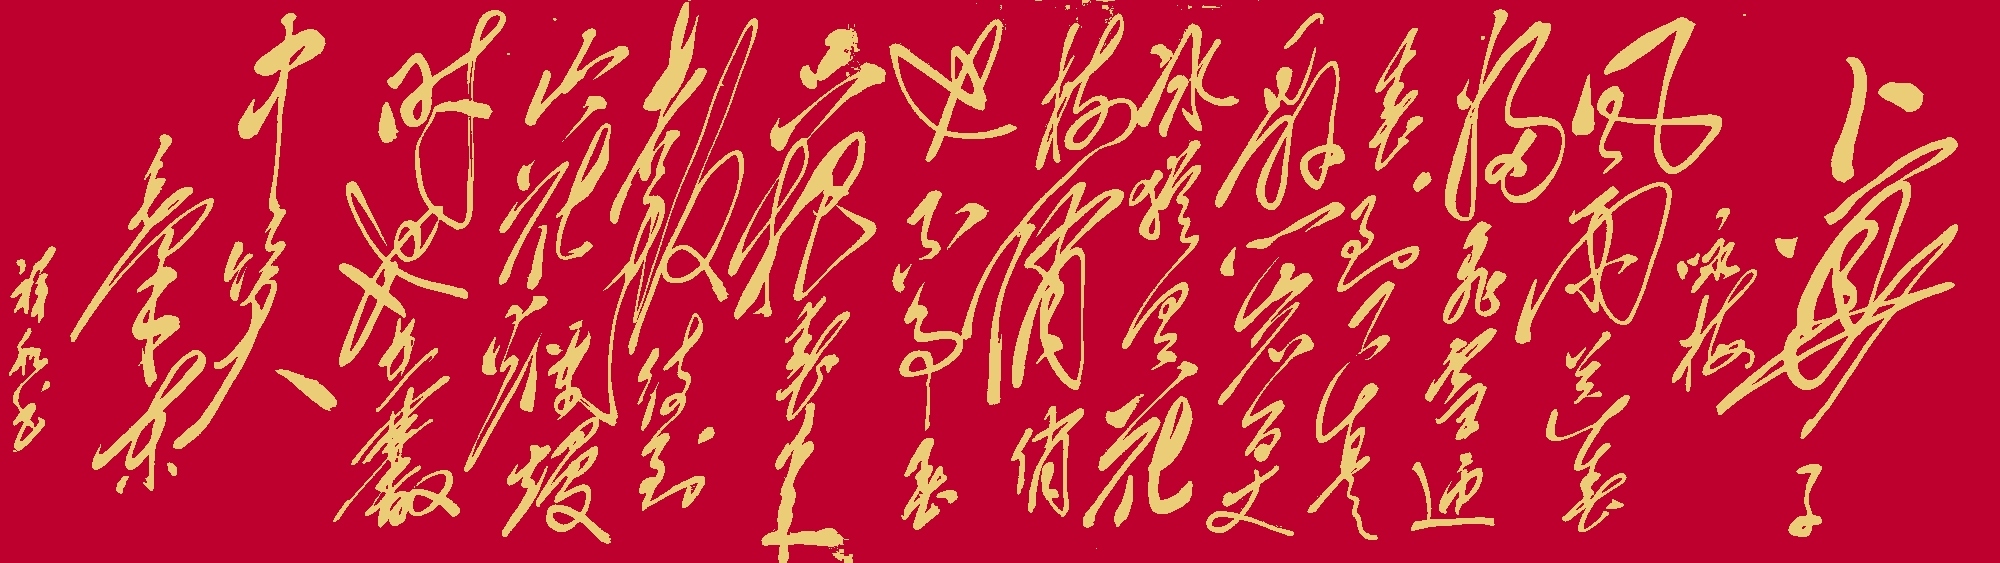 卜算子
咏梅
风雨送春
归飞雪迎
春到已是
悬崖百丈
冰犹有花
枝俏俏
也不争春
只把春来
报待到
山花烂漫
时她在叢
中笑
毛泽东